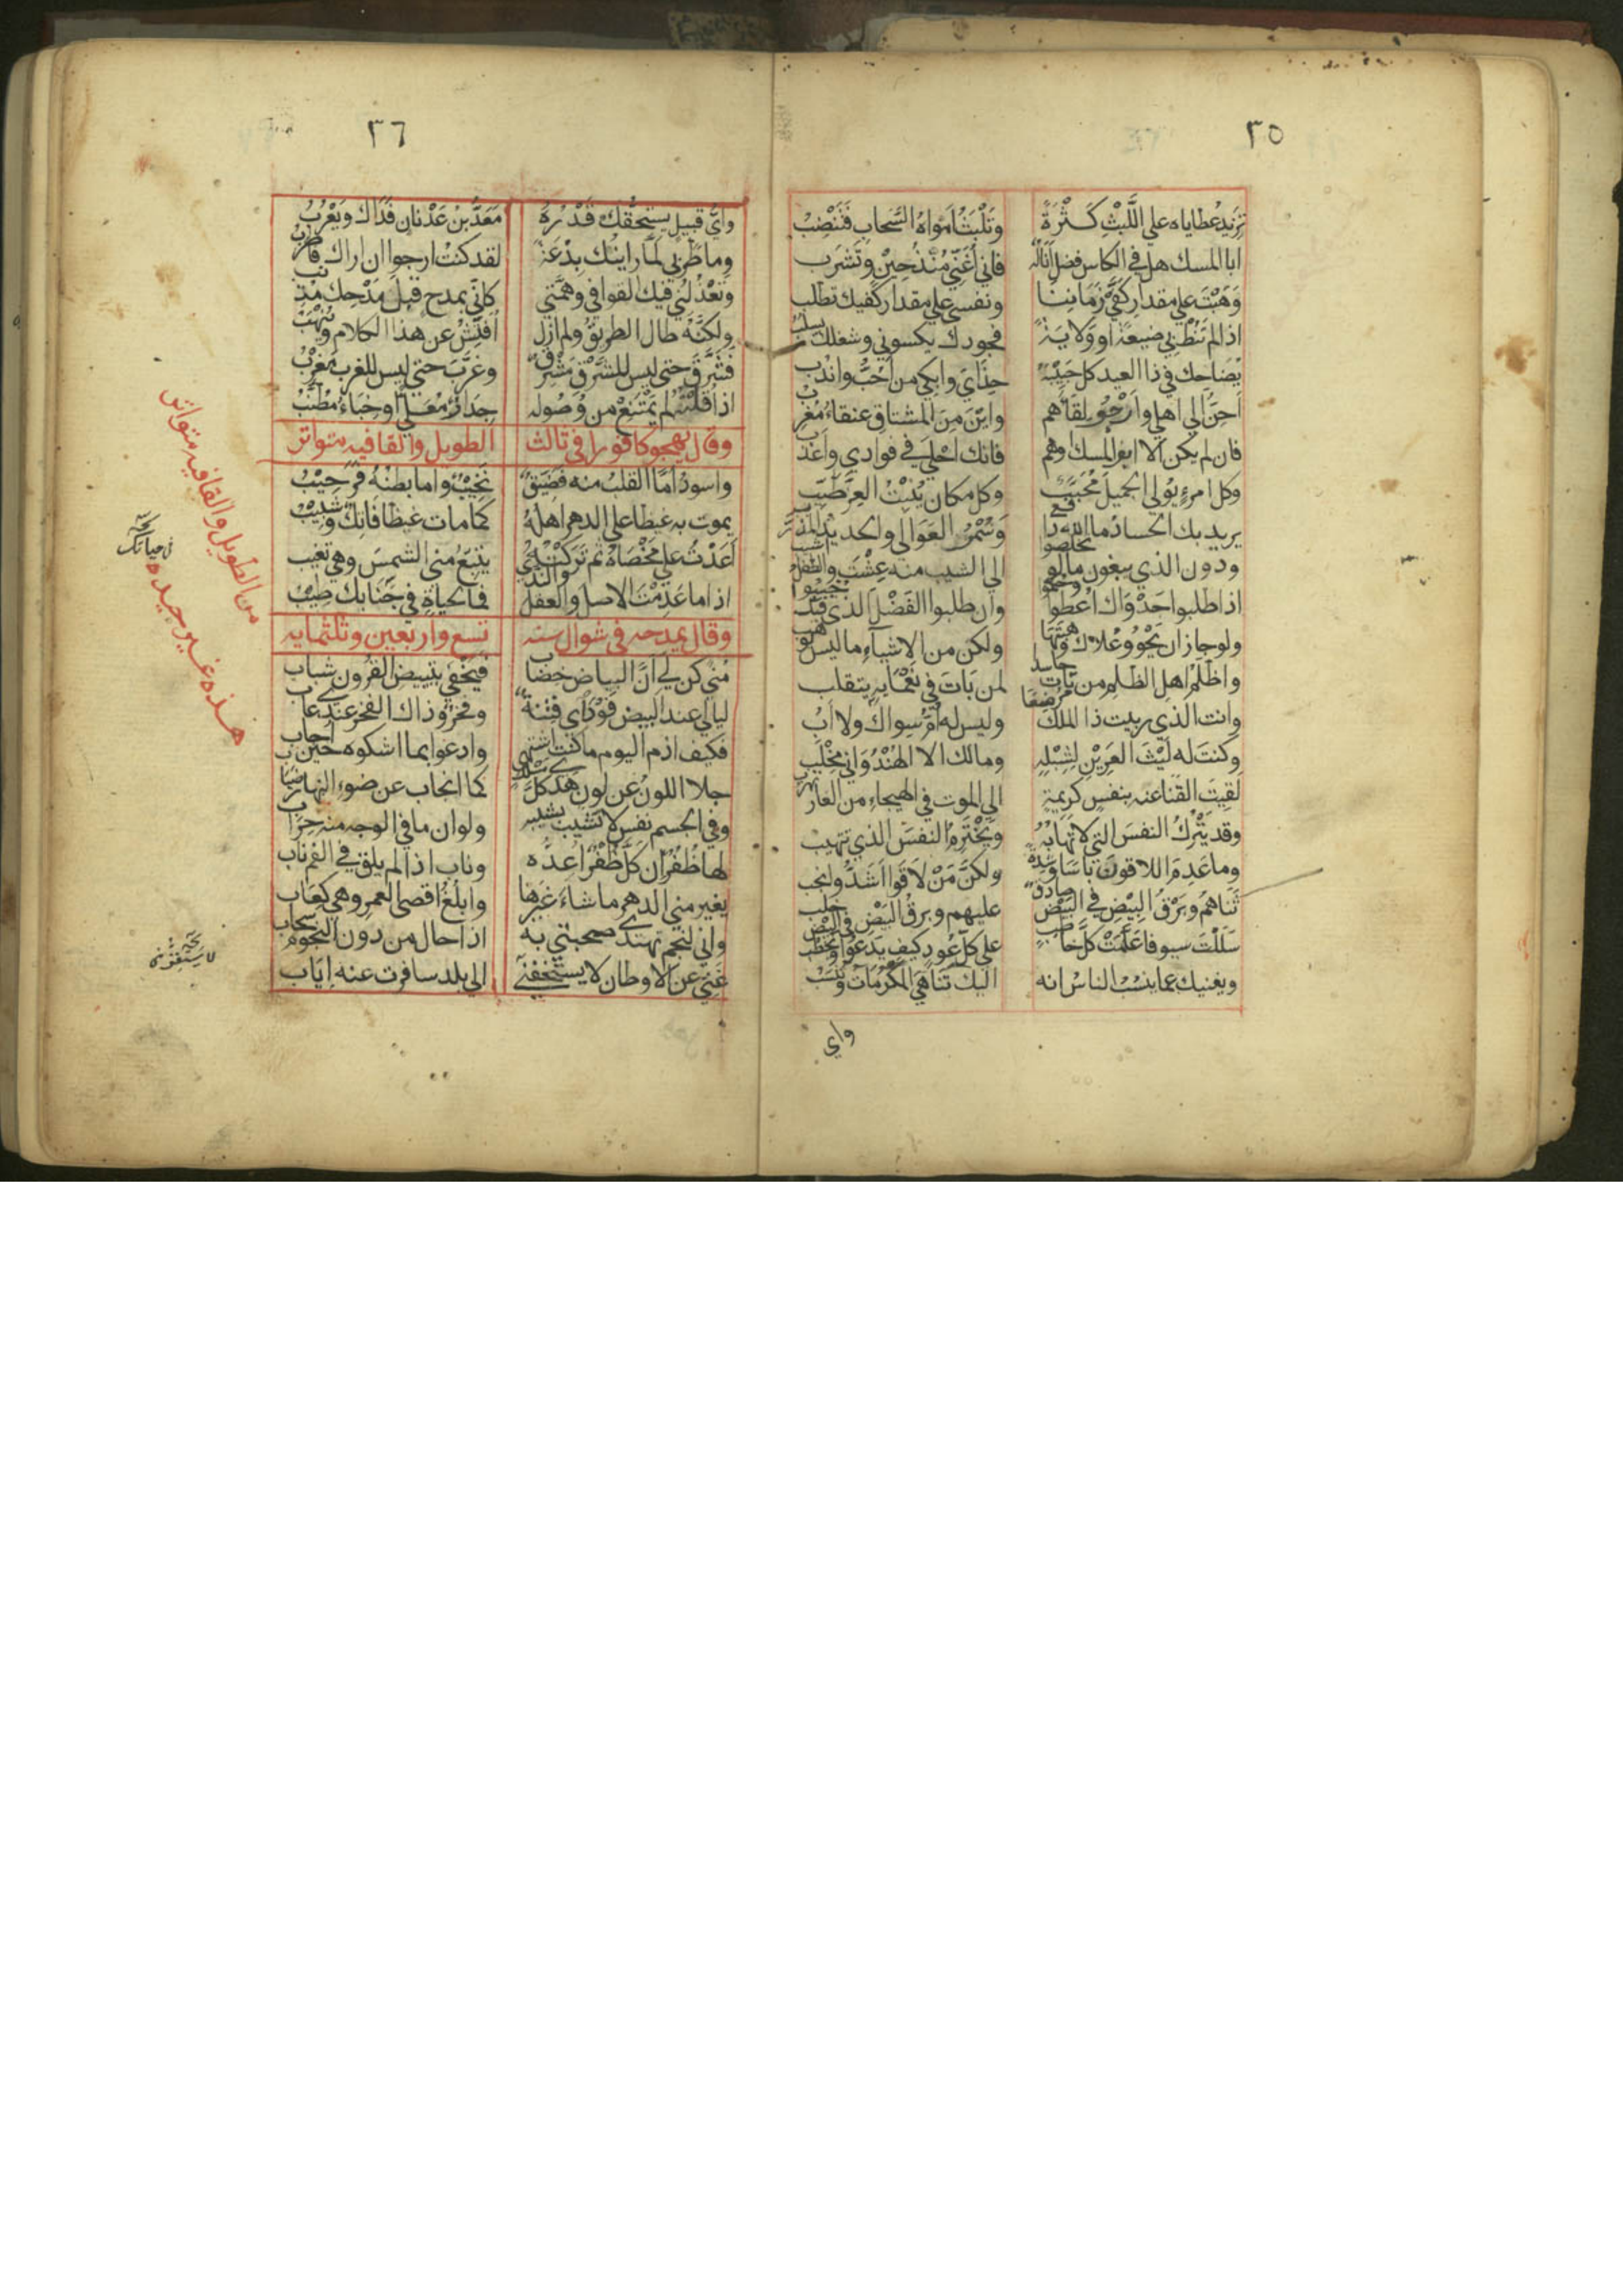 ٣٥
تزيد عطاياه علي اللَّبْثِ كَثْرَةً وَتَلْبَثُ اَمْوَاهُ السَّحَابِ فَتَنْضِبُ
ابا المسك هل في الكاس فضل اناله فاني اُغَنّي مُنْذُ حِيْنٍ وَتَشرَب
وَهَبْتَ علي مقدار كَفَّيْ زَمَانِنا ونفسي علي مقدار كفيك تطلب
اذا لم تَنُطْ بي ضيعةً او وَلايَةً فجودك يكسوني وشغلك يسلب
يُضَاحِك في ذا العيد كل حَبِيْبَهُ حِذَايَ وابكي من اُحِبُّ واندب
اَحِنُّ الي اهلي واَرْجُو لِقَاهُم واَيْنَ مِنَ المشتاق عنقاءُ مُغرب
فان لم يكن الا ابو المسك او هم فانك احلي في فوادي واعذب
وكل امرءٍ يُولي الجميلَ مُحَبَّبٌ وكل مكان يُنْبِتُ العِزَّ طَيِّب
يريد بك الحساد ما الله دافع وَسُمْرُ العَوَالي والحديد المذرب
ودون الذي يبغون ما لو تخلصوا الي الشيب منه عِشْتَ والطفل اشيب
اذا طلبوا جَدْوَاك اُعْطُوا وحكموا وان طلبوا الفَضْلَ الذي فيك خُيّبُوا
ولو جاز ان يَحْوُوْ عُلاك وهبتها ولكن من الاشياءِ ما ليس يوهب
واظلم اهل الظلم من بَاتَ حاسدا لمن بَاتَ في نَعْمَايه يتقلب
وانت الذي ربيت ذا الملك مُرْضَعًا وليس له اُمّ سواك ولا اَبُ
وكنتَ له لَيْثَ العَرِيْنِ لِشِبْلِهِ ومالك الا الهُنْدُوَاني مِخْلَب
لَقِيتَ القنا عنه بنفسٍ كريمةٍ الي الموت في الهيجاءِ من العار تهرب
وقد يَتْرُكُ النفسَ التي لا تهابهُ ويَخْتَرِمُ النفسَ الذي تتهيب
وما عَدِمَ اللاقوك بَاسًا وَشِدَّةً ولكنَّ مَنْ لاقَوا اَشَدُّ وانجب
ثَنَاهُم وبَرْقُ البِيْضِ في البَيْضِ صادق عليهم وبرقُ البَيْضِ في البِيْضِ خلب
سَلَلْتَ سيوفا عَلَّمَتْ كلَّ خاطب علي كل عُودٍ كيف يَدعُوا ويَخْطُب
ويغنيك عما ينسُبُ الناسُ انه اليك تَنَاهَي المكْرُمَاتُ وَتُنسَبُ
واي
٣٦
وايُّ قبيل يستحقك قَدْرُهُ مَعَدُّ بنُ عَدْنَانٍ فَدَاكَ وَيَعْرُبُ
وما طَرَبي لَمَّا رايتك بِدْعَةً لقد كنتُ ارجوا ان اراك فاطرب
وتَعْذُلُني فيك القوافي وهمَّتي كاني بمدحٍ قبلَ مَدْحِك مذنب
ولكنَّهُ طال الطريقُ ولم ازل اُفَتِّشُ عن هذا الكلام ويُنْهَبُ
فَشَرَّقَ حتي ليس للشَرْقِ مَشْرِقٌ وغَرَّبَ حتي ليس للغرب مغرب
اذا قلتُهُ لم يَمْتَنِعْ من وُصُوله جِدَارٌ مُعَلّيً او خِبَاءٌ مُطَنَّبُ
وقال يهجو كافورا في ثالث الطويل والقافيه متواتر
واسودَ اَمَّا القلبُ منه فضَيّقٌ نَخِيْبٌ واما بطنُهُ فرحِيْبُ
يموت به غيظا علي الدهر اهلهُ كما مات غيظا فَاتِكٌ وَشَبِيْبُ
اَعَدْتُ علي مَخْصَاهُ ثم تَرَكْتُهُ يُتَبِّعُ مني الشمسَ وهي تغيب
اذا ما عَدِمْتَ الاصلَ والعقل والندي فما لحياةٍ في جَنَابك طِيْبُ
وقال يمدحه في شوال سنه تسع واربعين وثلثمايه
مُنيً كن لي اَنَّ البياض خضاب فيَخْفَي بتبييض القُرون شباب
لياليَ عند البيض فَوْدَايَ فِتْنَةٌ وفخرٌ وذاك الفخر عندي عاب
فكيف اذم اليوم ما كنت اشتهي وادعوا بما اشكوه حين اجاب
جلا اللونُ عن لونٍ هدي كلَّ مسلك كما انجاب عن ضوء النهار ضباب
وفي الجسم نفس لا تشيب بشيبه ولو ان ما في الوجه منه حِرَاب
لها ظُفُرٌ ان كَلَّ ظُفْرٌ اُعِدُّه وناب اذا لم يبق في الفم ناب
يغير مني الدهر ما شاءَ غيرَها وابلغُ اقصي العمرِ وهي كَعَاب
واني لنجم تهتدي صحبتي به اذا حال من دون النجوم سحاب
غَنيٌّ عن الاوطان لا يستخفني الي بلد سافرت عنه اِيَاب
هذه غير جيده من الطويل والقافيه متواتر